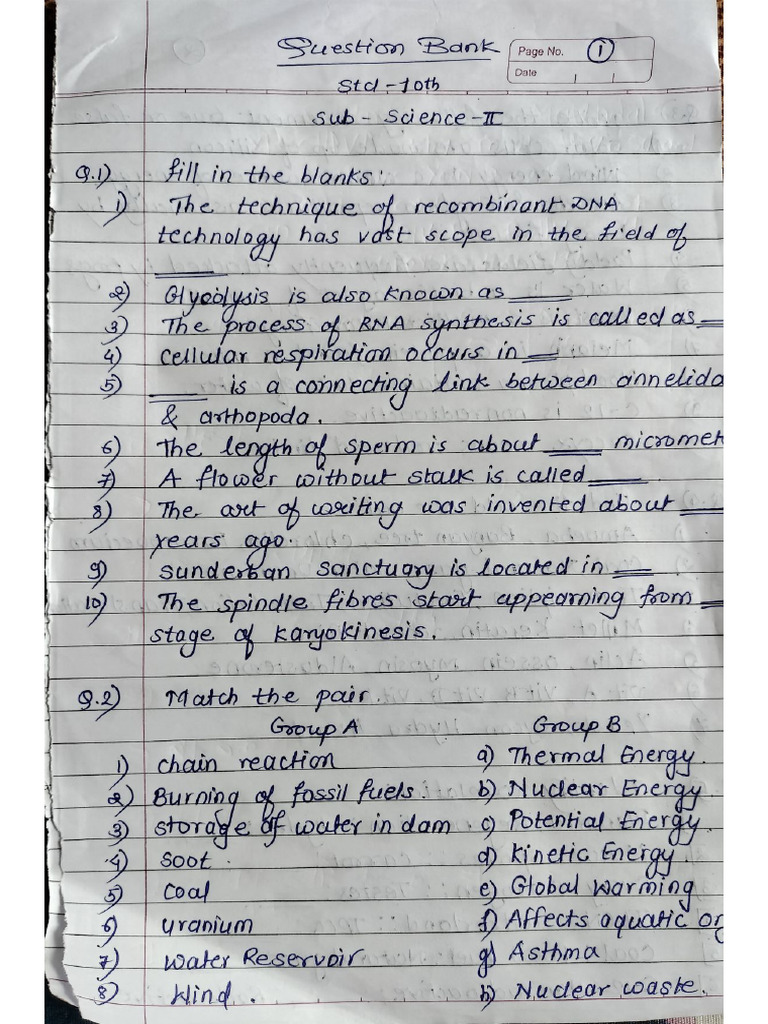 Question Bank
Page No. 1
Date
Std - 10th
Sub - Science - II
Q.1) Fill in the blanks:
1) The technique of recombinant DNA
technology has vast scope in the field of
____
2) Glycolysis is also known as ____
3) The process of RNA synthesis is called as __
4) Cellular respiration occurs in __.
5) ____ is a connecting link between annelida
& arthopoda.
6) The length of sperm is about ____ micromet
7) A flower without stalk is called ____.
8) The art of writing was invented about ____
years ago.
9) Sunderban sanctuary is located in ___
10) The spindle fibres start appearning from __
stage of karyokinesis.
Q.2) Match the pair.
Group A Group B
1) chain reaction a) Thermal Energy.
2) Burning of fossil fuels. b) Nuclear Energy
3) storage of water in dam. c) Potential Energy.
4) Soot. d) kinetic Energy.
5) Coal e) Global warming
6) uranium f) Affects aquatic org
7) Water Reservoir g) Asthma
8) Wind. h) Nuclear waste.